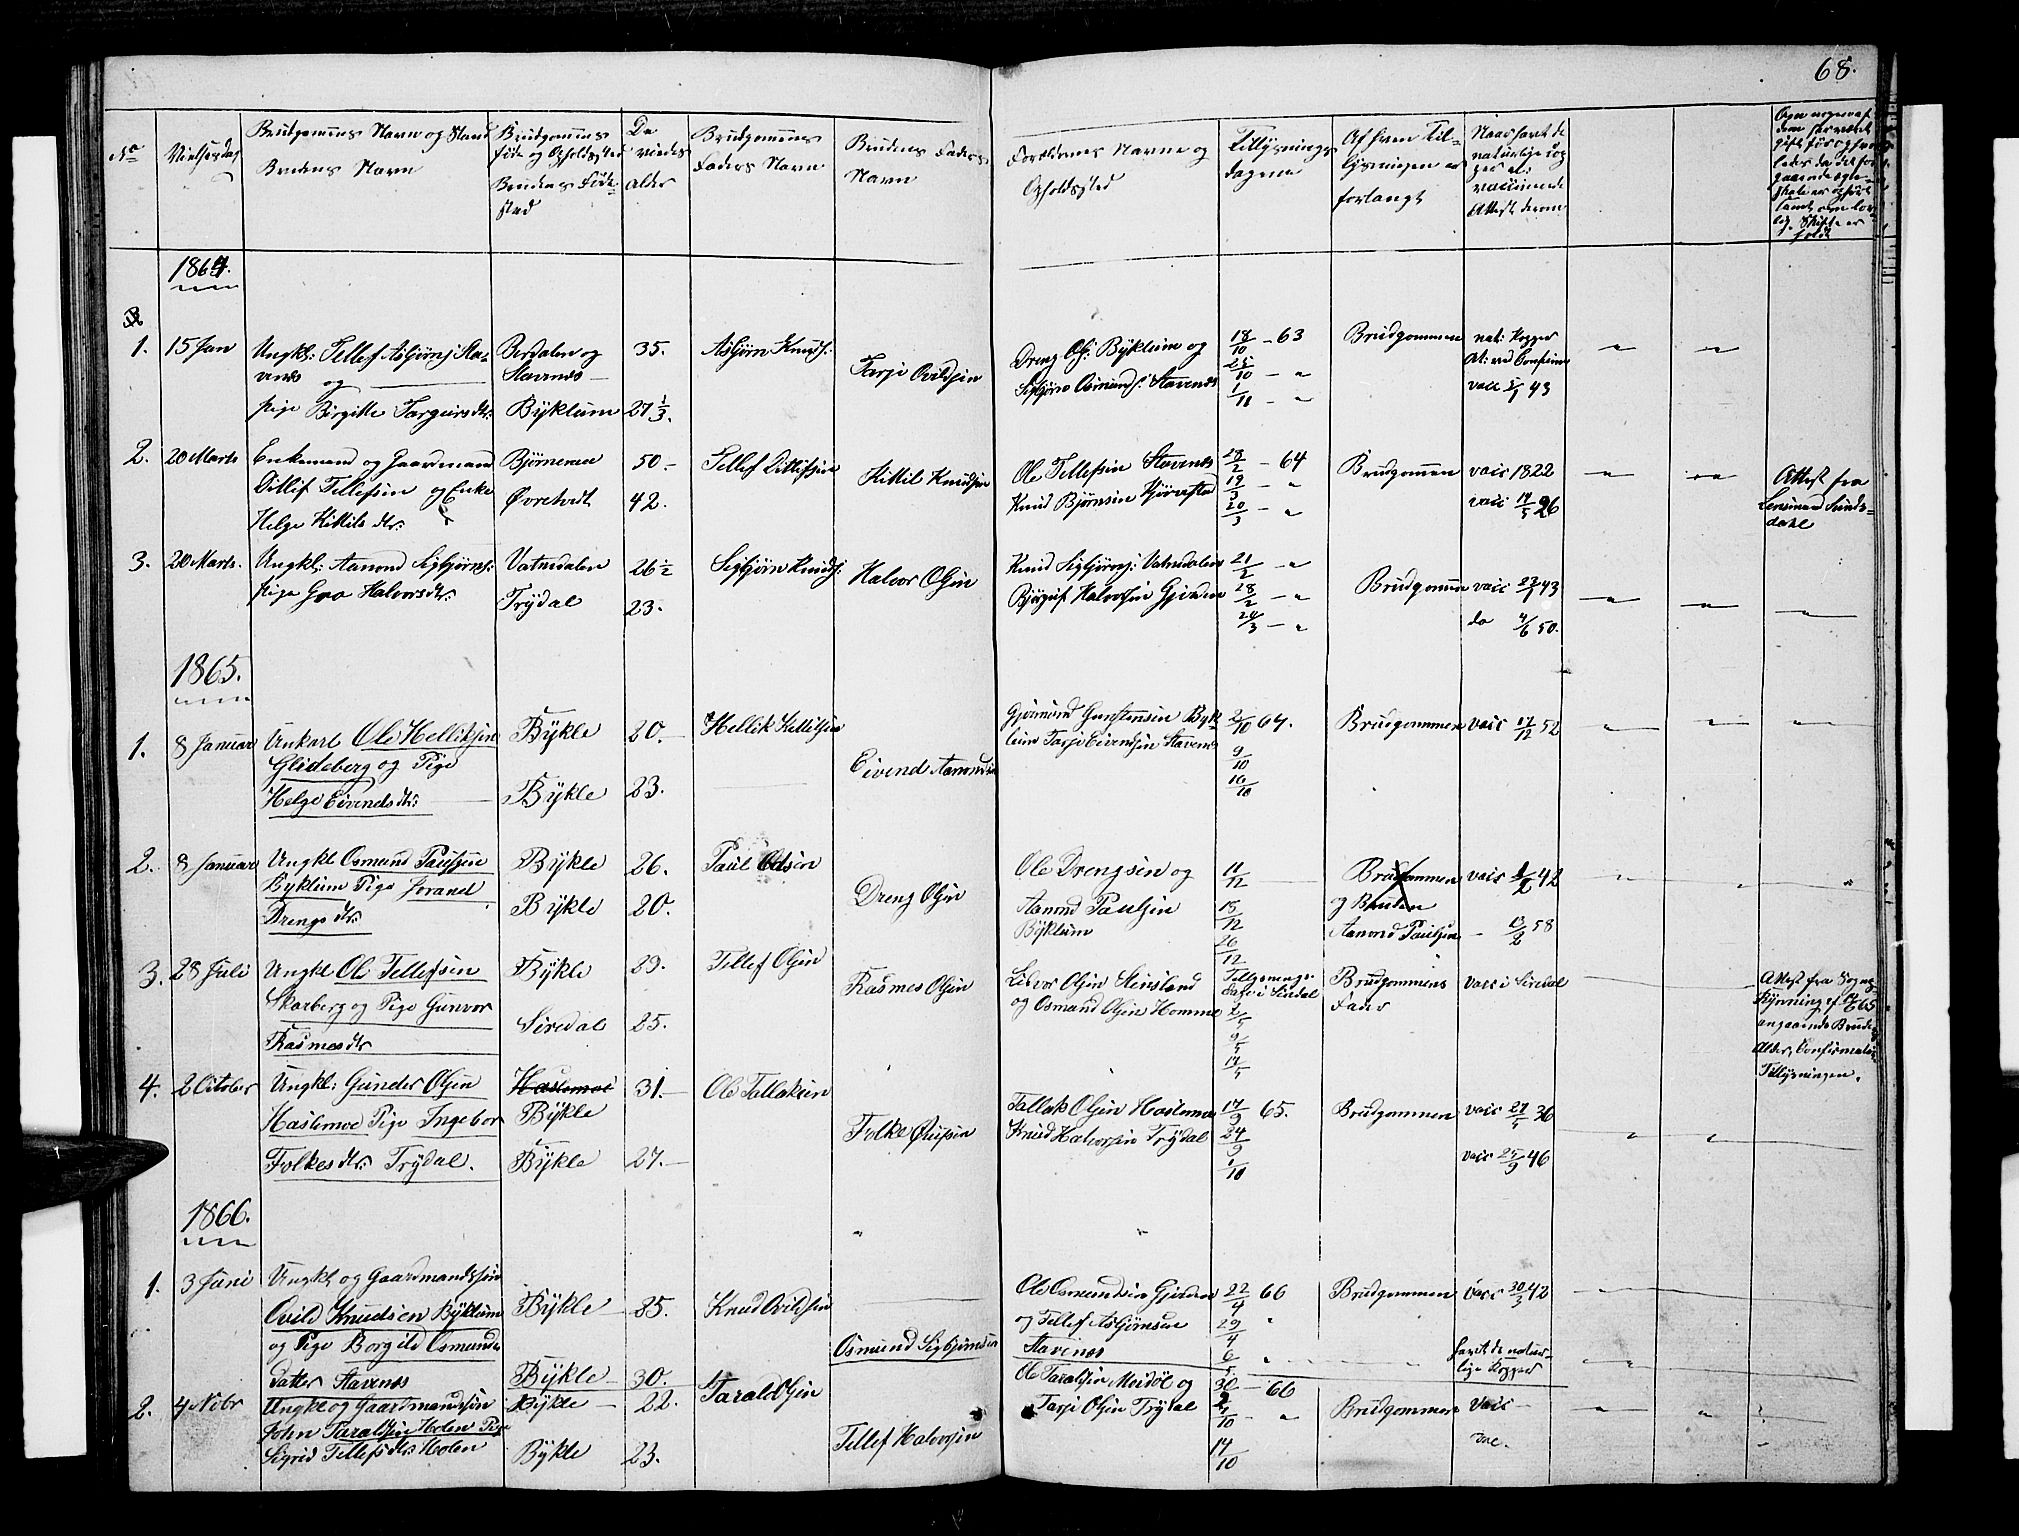 68.
No
Vielsesdag
Brudgomens Navn og Stand
Brudens Navn
Brudgomens
føde og Opholdssted
Brudens Føde
sted
De
viedes
alder
Brudgomens
Faders Navn
Brudens Faders
Navn
Forlovernes Navne og
Opholdssted
Tillysnings
dagene
Af hvem Til-
lysningen er
forlangt
Naar havt de
naturlige Kop
per el:
vaccinerede
Attest derom
1864.
1.
15 Jan
Ungkl: Tellef Asbjørns: Sta-
venes og
Pige Birgitte Targiersdtr:
Berdalen og
Stavenes
Byklum
35.
27 1/3.
Asbjørn Knuds:
Tarje Ovildsen
Dreng Ols: Byklum og
Sigbjørn Osmunds: Stavenes
18/10 - 63
25/10 - "
1/11 - "
Brudgommen
nat: Kopper
At: ved Confirm
vacc 5/1 43
2.
20 Marts
Enkemand og Gaardmand
Ditlif Tellefsen og Enke
Helge Kittilsdtr:
Bjørneraa
Øvretvedt
50.
42.
Tellef Ditlifsen
Kittil Knudsen
Ole Tellefsen Stavenes
Knud Bjørnsen
28/2 - 64
19/3 - "
20/3 - "
Brudgomen
vacc 1822
vacc 14/5 26
Attest fra
Lensmand
3.
20 Marts.
Ungkl: Aanond Sigbjørns:
Pige Gro Halvorsdtr:
Vatnedalen
Trydal
26 1/2
23.
Sigbjørn Knuds:
Halvor Olsen
Knud Sigbjørns: Vatnedalen
Bjørguf Halvorsen Gjerden
21/2 - "
28/2 - "
Brudgomen
vacc 23/1 43
do 4/6 50.
1865.
1.
8 Januar
Unkarl Ole Helliksen
Glideberg og Pige
Helge Eivendsdtr:
Bykle
Bykle
20.
23.
Hellik Kittilsen
Eivend Aanondsen
Gjermund Gunstensen Byk-
lum Tarje Eivendsen Stavenes
2/10 64.
9/10
16/10
Brudgommen
vacc 17/12 52
2.
8 Januar
Ungkl Osmund Paulsen
Byklum Pige Jorand
Drengsdtr:
Bykle
Bykle
26.
20.
Paul Odsen
Dreng Olsen
Ole Drengsen og
Aanond Paulsen
Byklum
11/12
15/12
26/12
Brudgommen
og Bruden
Aanond Paulsen
vacc 1/2 42
13/2 58
3.
28 Juli
Ungkl Ole Tellefsen
Skarberg og Pige Gunvor
Rasmesdtr
Bykle
Siredal
29.
25.
Tellef Olsen
Rasmes Olsen
Libvor Olsen Stensland
og Osmund Olsen Homme
Tillysnings-
Dage i Sirdal
2/5
9/5
14/5
Brudgommens
Fader
vacc i Siredal
Attest fra Sogne-
angaaende Brudens
Alder, Confirmation
Tillysningen.
4.
2 October
Ungkl: Gunder Olsen
Haslemoe Pige Ingebor
Folkesdtr: Trydal.
Haslemoe
Bykle
Bykle
31.
27.
Ole Tallaksen
Folke
Tallak Olsen Haslemoe
Knud Halvorsen Trydal
17/9 65.
24/9
1/10
Brudgommen
vacc 27/5 36
vacc 25/9 46
1866.
1.
3 Juni
Ungkl og Gaardmandssøn
Ovild Knudsen Byklum
og Pige Borgild Osmunds
datter Stavenes
Bykle
Bykle
35.
30.
Knud Ovildsen
Osmund Sigbjørnsen
Ole Osmundsen Gjerden
og Tellef Asbjørnsen
Stavenes
22/4 66
29/4 "
6/5 "
Brudgommen
vacc 30/3 42
havt de natur-
lige Kopper
2.
4 Nobr
Ungkl og Gaardmandssøn
John Taraldsen Holen Pige
Sigrid Tellefsdtr: Holen
Bykle
Bykle
22.
23.
Tarald Olsen
Tellef Halvorsen
Ole Taraldsen Mosdøl og
Tarje Olsen Trydal
30 - 66
7/10 - "
14/10
Brudgommen
vacc
vac.